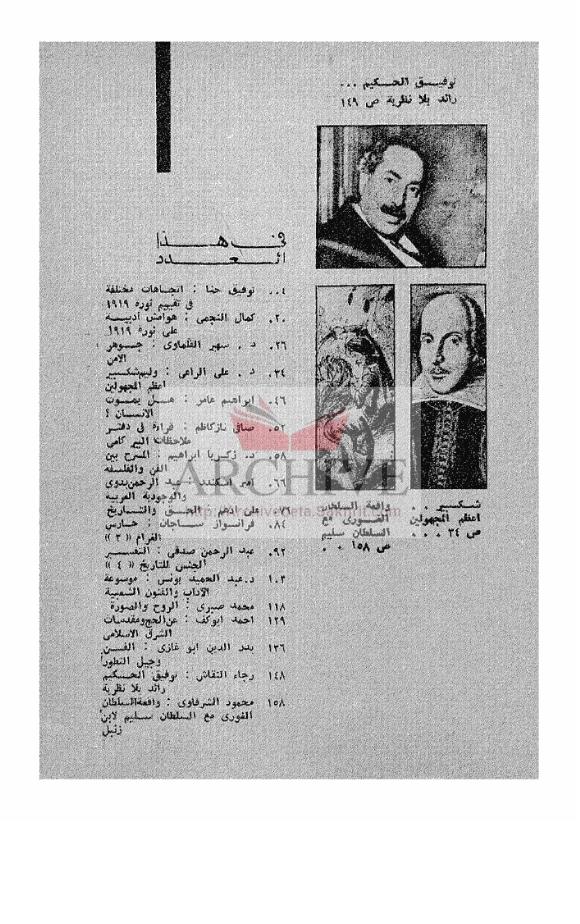 توفيق الحكيم ...
رائد بلا نظرية ص ١٤٩
في هذا
العدد
٤.. توفيق حنا : اتجاهات مختلفة
في تقييم ثورة ١٩١٩
٢٠. كمال النجمي : هوامش أدبية
على ثورة ١٩١٩
٢٦. د . سهير القلماوى : جوهر
الامن
٣٤. د . على الراعى : وليم شكسبير
اعظم المجهولين
٤٦. ابراهيم عامر : هل يموت
الانسان ؟
٥٢. صافى ناز كاظم : قراءة فى دفتر
ملاحظات البير كامى
٥٨. د. زكريا ابراهيم : المسرح بين
الفن والفلسفة
٦٦. امير اسكندر : عبد الرحمن بدوى
والوجودية العربية
٧٦. على ادهم : الحق والتاريخ
٨٤. فرانسواز ساجان : حارس
الغرام « ٣ »
٩٢. عبد الرحمن صدقى : التفسير
الجنسى للتاريخ « ٤ »
١٠٣ د. عبد الحميد يونس : موسوعة
الآداب والفنون الشعبية
١١٨ محمد صبرى : الروح والصورة
١٢٩ احمد ابو كف : عن الحج ومقدسات
الشرق الاسلامى
١٣٦ بدر الدين ابو غازى : الفن
وجيل التطور
١٤٨ رجاء النقاش : توفيق الحكيم
رائد بلا نظرية
١٥٨ محمود الشرقاوى : واقعة السلطان
الغورى مع السلطان سليم لابن
زنبل
شكسبير . .
اعظم المجهولين
ص ٣٤ . . .
واقعة السلطان
الغورى مع
السلطان سليم
ص ١٥٨ . .
ARCHIVE
http://Archivebeta.Sakhrit.com